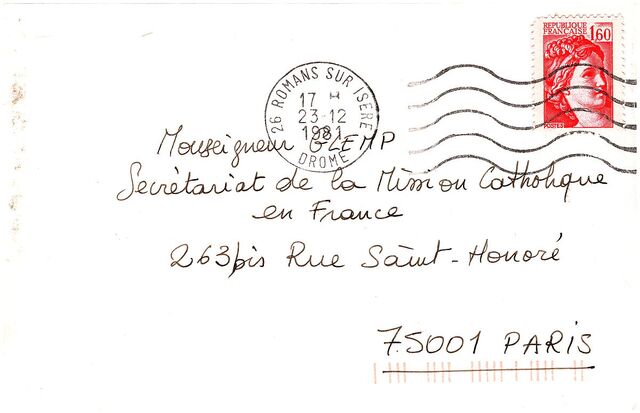 REPUBLIQUE
FRANÇAISE 1,60
POSTES
26 ROMANS SUR ISERE
17 H
23-12
1981
DROME
Monseigneur GLEMP
Secrétariat de la Mission Catholique
en France
263bis Rue Saint-Honoré
75001 PARIS